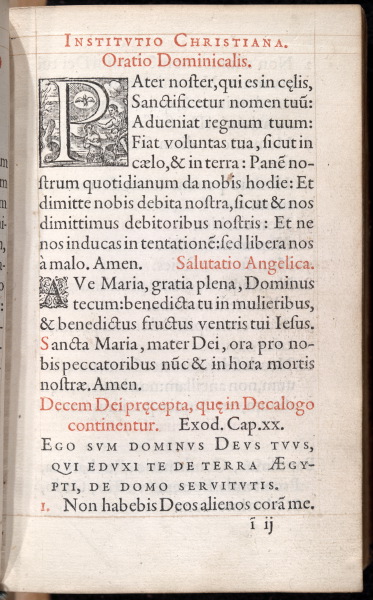 INSTITVTIO CHRISTIANA.
Oratio Dominicalis.
PAter noſter, qui es in cęlis,
Sanctificetur nomen tuū:
Adueniat regnum tuum:
Fiat voluntas tua, ſicut in
cælo, & in terra: Panē no-
ſtrum quotidianum da nobis hodie: Et
dimitte nobis debita noſtra, ſicut & nos
dimittimus debitoribus noſtris: Et ne
nos inducas in tentationē: ſed libera nos
à malo. Amen. Salutatio Angelica.
AVe Maria, gratia plena, Dominus
tecum: benedicta tu in mulieribus,
& benedictus fructus ventris tui Ieſus.
Sancta Maria, mater Dei, ora pro no-
bis peccatoribus nūc & in hora mortis
noſtræ. Amen.
Decem Dei pręcepta, quę in Decalogo
continentur. Exod. Cap. xx.
EGO SVM DOMINVS DEVS TVVS,
QVI EDVXI TE DE TERRA ÆGY-
PTI, DE DOMO SERVITVTIS.
1. Non habebis Deos alienos corā me.
ī ij